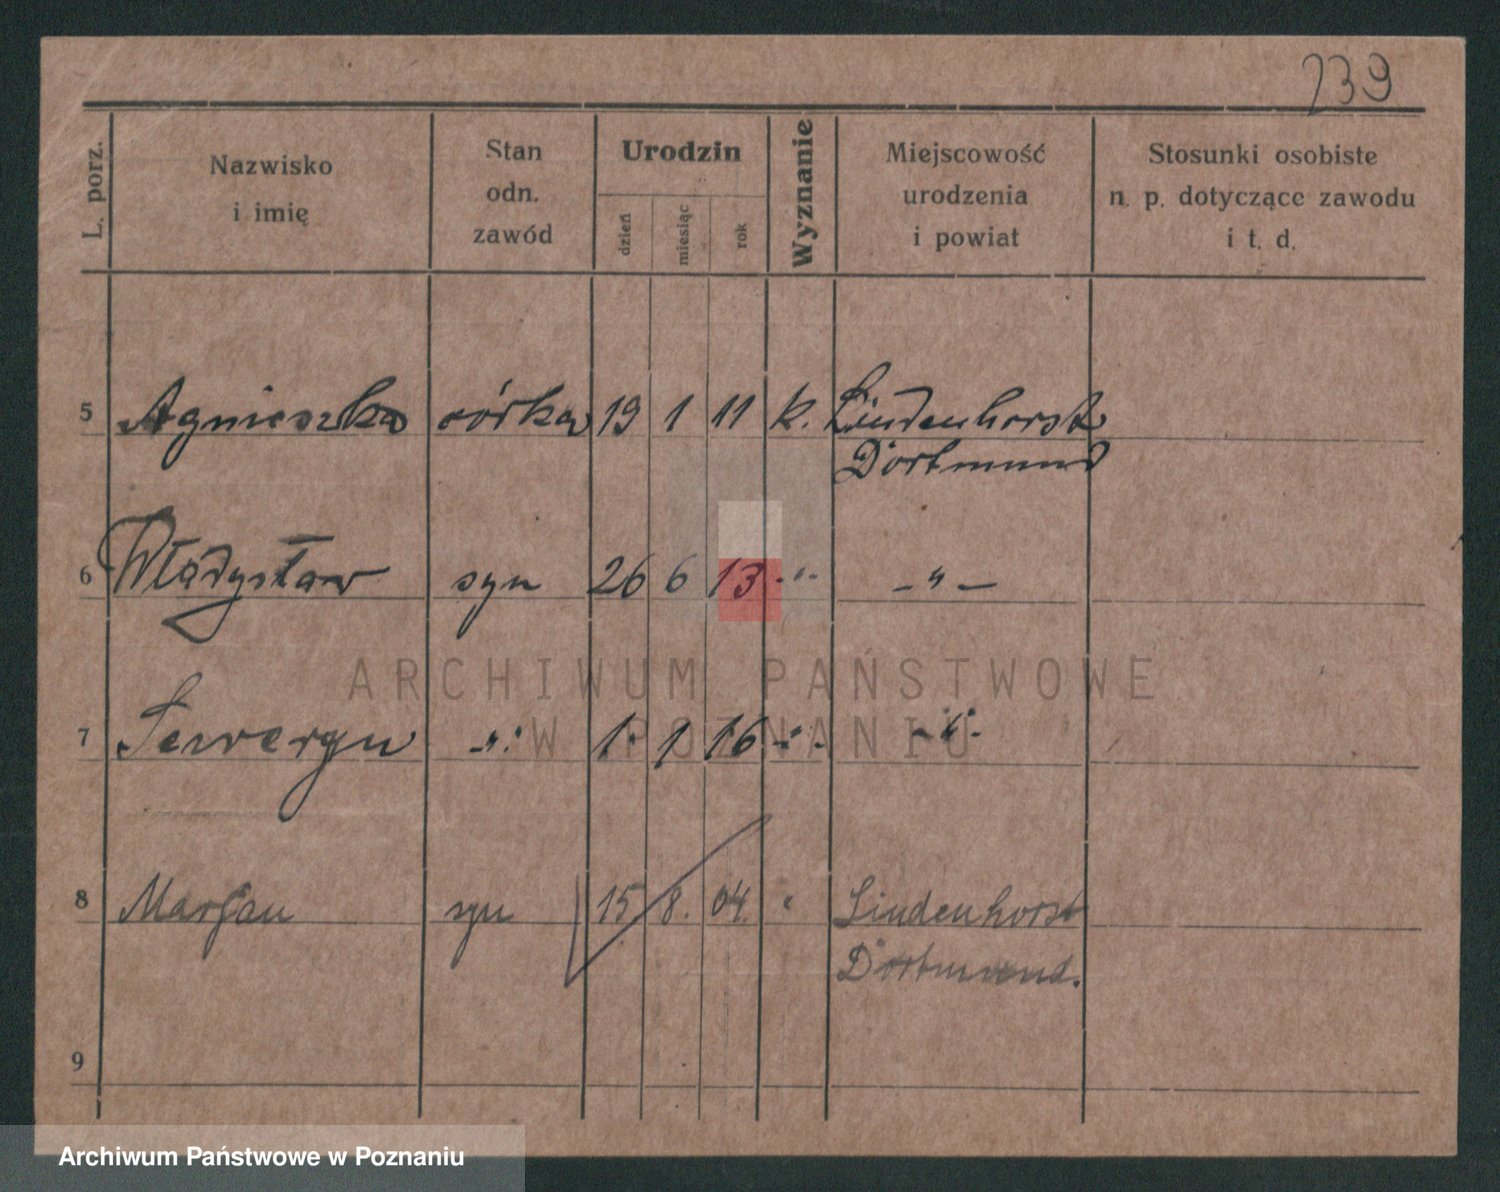 239
L. porz.
Nazwisko
i imię
Stan
odn.
zawód
Urodzin
dzień
miesiąc
rok
Wyznanie
Miejscowość
urodzenia
i powiat
Stosunki osobiste
n. p. dotyczące zawodu
i t. d.
5 Agnieszka córka 19 1 11 k. Lindenhorst
Dortmund
6 Władysław syn 26 6 13 -"- -"-
ARCHIWUM PAŃSTWOWE
W POZNANIU
7 Seweryn -"- 1 1 16 -"- -"-
8 Marjan syn 15 8. 04. " Lindenhorst
Dortmund.
9
Archiwum Państwowe w Poznaniu